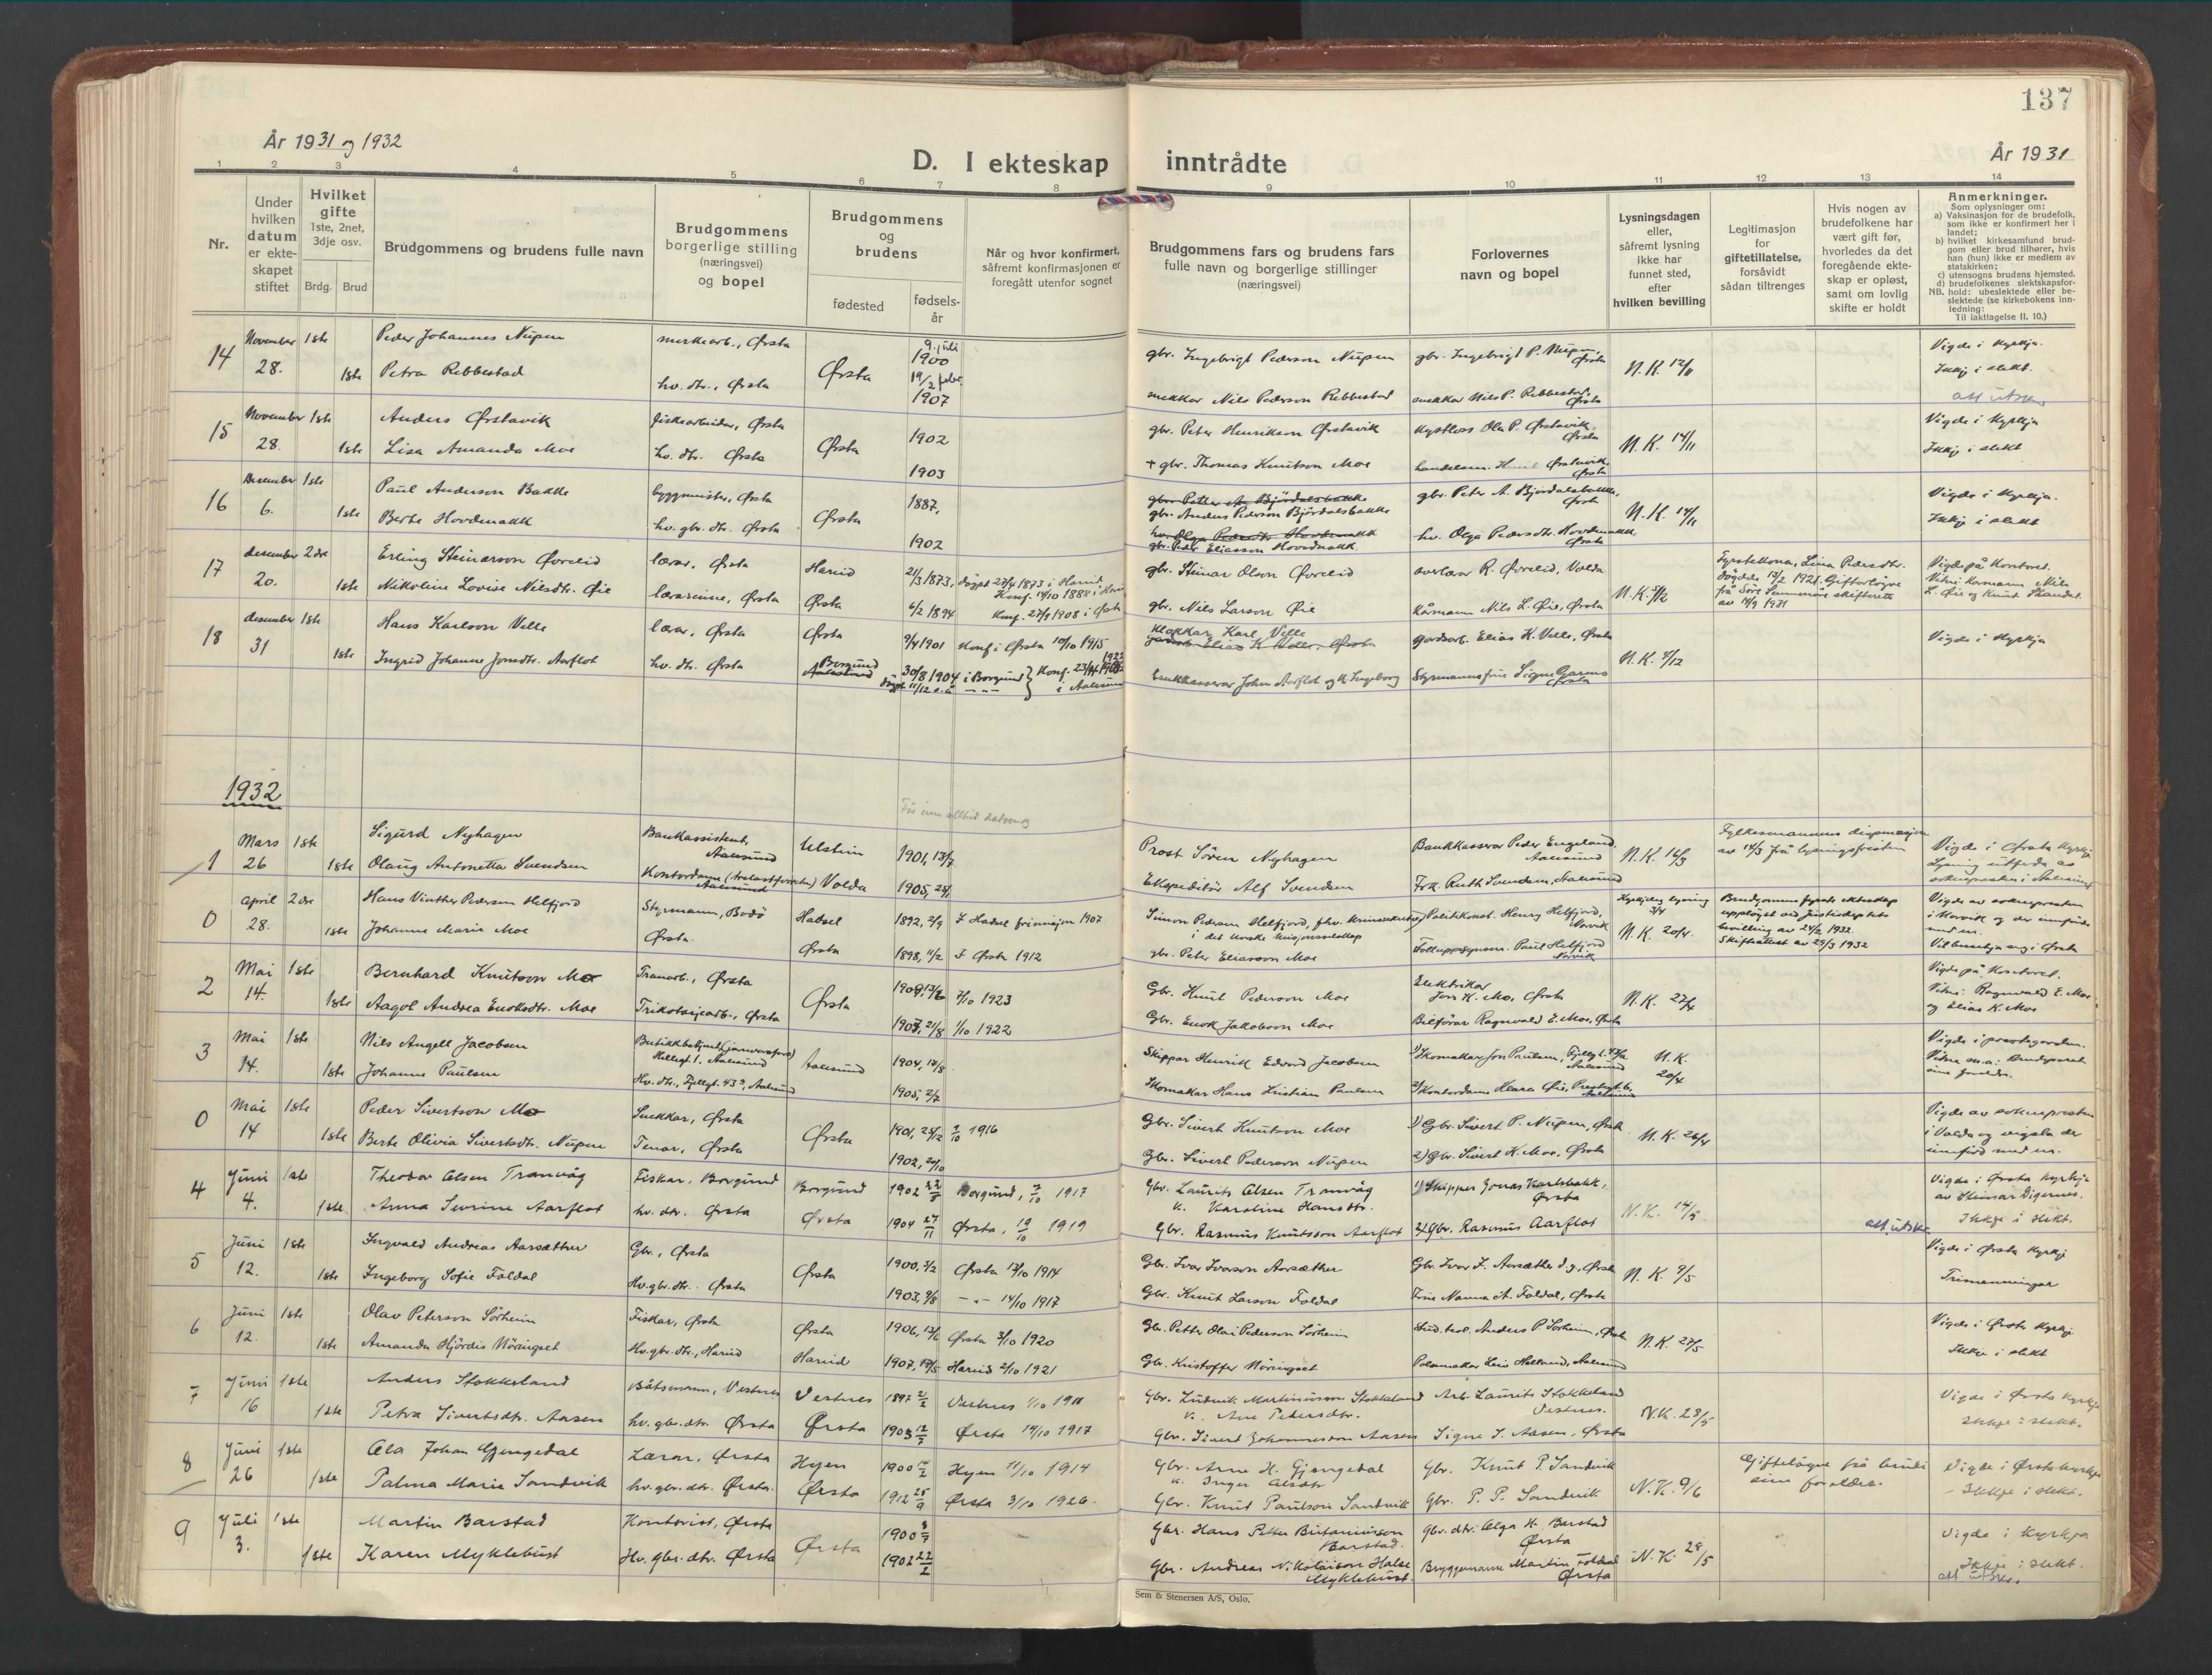 137
År 1931 og 1932
D. I ekteskap inntrådte
År 1931
1 2 3 4 5 6 7 8 9 10 11 12 13 14
Nr.
Under hvilken datum er ekteskapet stiftet
Hvilket gifte 1ste, 2net, 3dje osv.
Brdg. Brud
Brudgommens og brudens fulle navn
Brudgommens borgerlige stilling (næringsvei) og bopel
Brudgommens og brudens
fødested
fødselsår
Når og hvor konfirmert, såfremt konfirmasjonen er foregått utenfor sognet
Brudgommens fars og brudens fars fulle navn og borgerlige stillinger (næringsvei)
Forlovernes navn og bopel
Lysningsdagen eller, såfremt lysning ikke har funnet sted, efter hvilken bevilling
Legitimasjon for giftetillatelse, forsåvidt sådan tiltrenges
Hvis nogen av brudefolkene har vært gift før, hvorledes da det foregående ekteskap er opløst, samt om lovlig skifte er holdt
Anmerkninger.
Som oplysninger om:
a) Vaksinasjon for de brudefolk, som ikke er konfirmert her i landet;
b) hvilket kirkesamfund brudgom eller brud tilhører, hvis han (hun) ikke er medlem av statskirken;
c) utensogns brudens hjemsted.
d) brudefolkenes slektskapsforhold: ubeslektede eller beslektede (se kirkebokens innledning:
NB.
Til iakttagelse II. 10.)
14 November 28. 1ste Peder Johannes Nupen Ørsta 9. juli 1900 gbr. Ingebrigt Pederson Nupen gbr. Ingebrigt P. Nupen, Ørsta N.K. 12/11 Vigde i kyrkja.
1ste Petra Rebbestad hv. dtr., Ørsta Ørsta 19/2 1907 snekkar Nils Pederson Rebbestad snekkar Nils P. Rebbestad, Ørsta Ikkje i slekt.
att utskr.
15 November 28. 1ste Anders Ørstavik fiskearbeider, Ørsta 1902 gbr. Peter Henrikson Ørstavik Ola P. Ørstavik, Ørsta N.K. 14/11 Vigde i kyrkja
1ste Lisa Amanda Moe hv. dtr. Ørsta Ørsta 1903 + gbr. Thomas Knutson Moe handelsm. Knut Ørstavik Ørsta Ikkje i slekt
16 Desember 6. 1ste Paul Anderson Bakke byggmeister, Ørsta 1887, gbr. Petter A. Bjørdalsbakke gbr. Peter A. Bjørdalsbakke, Ørsta N.K. 14/11 Vigde i kyrkja.
gbr. Anders Pederson Bjørdalsbakke
1ste Berte Hovdenakk hv. gbr. dtr. Ørsta Ørsta 1902 hv. Olga Pedersdtr. Hovdenakk hv. Olga Pedersdtr. Hovdenakk, Ørsta Ikkje i slekt
gbr. Peder Eliasson Hovdenakk
17 desember 20. 2dre Erling Steinarson Øvrelid lærar, Ørsta Hareid 21/3 1873, døypt 27/4 1873 i Hareid Konf. 14/10 1888 i gbr. Steinar Olson Øvrelid overlærar R. Øvrelid, Volda N.K. 5/12 Fyrstekona, Lina Pedersdtr. døydde 13/2 1921. Gifterløyve frå Søre Sunnmøre skifterett av 14/9 1931 Vigde på kontoret.
1ste Nikoline Lovise Nilsdtr. Øie lærarinne, Ørsta Ørsta 6/2 1894 Konf. 27/9 1908 i Ørsta gbr. Nils Larson Øie kårmann Nils L. Øie, Ørsta Vitni: kårmann Nils L. Øie og Knut
18 desember 31 1ste Hans Karlson Velle lærar, Ørsta Ørsta 9/4 1901 Konf i Ørsta 10/10 1915 Klokkar Karl Velle gardsarb. Elias K. Velle, Ørsta N.K. 4/12 Vigde i kyrkja
gardsarb. Elias K. Velle, Ørsta
1ste Ingrid Johanne Jonsdtr. Aarflot hv. dtr. Ørsta Borgund Aalesund 30/8 1904 i Borgund døypt 11/12 s.å. Konf. 23/4 1922 i Aalesund bankkasserar John Aarflot og k. Ingeborg Styrmannsfrue Signe Garnes Ørsta
1932
1 Mars 26 1ste Sigurd Nyhagen Bankassistent, Aalesund Ulstein 1901, 13/7 Prost Sören Nyhagen Bankkasserar Peder Engeland. Aalesund N.K. 16/3 Fylkesmannens dispensasjon av 14/3 frå lysningsfristen Vigde i Ørsta kyrkje
1ste Olaug Antonette Svendsen Kontordame Aalesund Volda 1905, Ekspeditör Alf Svendsen Frk. Ruth Svendsen, Aalesund Lysning utførde av sokneprosten i Aalesund
0 April 28. 2dre Hans Vinther Pedersen Helfjord Styrmann, Bodö Hadsel 1892, 2/9 F Hadsel frimisjon 1907 Simon Pedersen Helfjord, i det norske misjonsselskap Politikonst. Henry Helfjord, Narvik Kyrkjeleg lysing 3/4 Brudgomens fyrste ekteskap uppløyst ved Justisdeptets bevilling av 24/2 1932. Skifteattest av 29/3 1932 Vigde av sokneprosten i Narvik og der innførde
1ste Johanne Marie Moe Ørsta. Ørsta 1898, 11/2 F Ørsta 1912 gbr. Peter Eliasson Moe Paul Helfjord Narvik N.K. 20/4
2 Mai 14. 1ste Bernhard Knutson Mo Tranarb., Ørsta 1909, 13/2 7/10 1923 Gbr. Knut Pederson Moe Elektrikar Jon K. Mo, Ørsta N.K. 27/4 Vigde på kontoret.
1ste Aagot Andrea Enoksdtr. Moe Trikotasjearb., Ørsta Ørsta 1907, 21/8 1/10 1922 Gbr. Enok Jakobson Moe Bilförar Ragnvald E. Moe, Ørsta Vitni: Ragnvald E. Moe og Elias K. Moe
3 Mai 14. 1ste Nils Angell Jacobsen Butikkbetjent Aalesund Aalesund 1904, 17/8 Skippar Henrik Edvard Jacobsen 1) Skomakar Jon Paulsen, Aalesund N.K. 20/4 Vigde i prestegarden.
1ste Johanne Paulsen Hv. dtr., Fjellgt. 43, Aalesund 1905, 2/7 Skomakar Hans Kristian Paulsen 2) Kontordame Klara Øie, Aalesund
0 Mai 14 1ste Peder Sivertson Mo Snekkar, Ørsta 1901, 25/2 1/10 1916 Gbr. Sivert Knutson Moe 1) Gbr. Sivert P. Nupen, Ørsta N.K. 26/4 Vigde av sokneprosten i Volda og vigsla der innförd med nr.
1ste Berte Olivia Sivertsdtr. Nupen Tenar, Ørsta Ørsta 1902, 24/10 Gbr. Sivert Pederson Nupen 2) Gbr. Sivert K. Moe, Ørsta
4 Juni 4. 1ste Theodor Olsen Tranvåg Fiskar, Borgund Borgund 1902 Borgund, 7/10 1917 Gbr. Laurits Olsen Tranvåg k. Karoline Hansdtr. 1) Skipper Jonas Karlsbakk, Ørsta N.K. 14/5 Vigde i Ørsta kyrkje av Steinar Digernes.
1ste Anna Severine Aarflot hv. dtr. Ørsta Ørsta 1904 27/11 Ørsta, 19/10 1919 Gbr. Rasmus Knutsson Aarflot 2) Gbr. Rasmus Aarflot att. utskr. Ikkje i slekt.
5 Juni 12. 1ste Ingvald Andreas Aarsæther Gbr., Ørsta 1900, 3/2 Ørsta 13/10 1914 Gbr. Ivar Ivarson Aarsæther Gbr. Ivar I. Aarsæther d.y., Ørsta N.K. 9/5 Vigde i Ørsta kyrkje
1ste Ingeborg Sofie Foldal Hv. gbr. dtr. Ørsta Ørsta 1903, 9/8 — „ — 14/10 1917 Gbr. Knut Larson Foldal Foldal, Ørsta Trimenningar
6 Juni 12. 1ste Olav Peterson Sörheim Fiskar, Ørsta Ørsta 1906, 13/6 Ørsta 3/10 1920 Gbr. Petter Olai Pederson Sörheim Stud. teol. Anders P Sörheim, Ørsta N.K. 27/5 Vigde i Ørsta kyrkje
1ste Amanda Hjördis Nöringset Hv. gbr. dtr., Hareid Hareid 1907, 19/5 Hareid 2/10 1921 Gbr. Kristoffer Nöringset Helland, Aalesund Ikkje i slekt
7 Juni 16 1ste Anders Stokkeland Båtsmann, Vestnes Vestnes 1897 2/2 Vestnes 1/10 1911 Gbr. Ludvik Martinusson Stokkeland k. Ane Pedersdtr. Arb. Laurits Stokkeland Vestnes. N.K. 28/5 Vigde i Ørsta kyrkje
1ste Petra Sivertsdtr. Aasen hv. gbr. dtr. Ørsta Ørsta 1903 Ørsta 14/10 1917 Gbr. Sivert Johannesson Aasen Signe S. Aasen, Ørsta Ikkje i slekt.
8 Juni 26 1ste Ola Johan Gjengedal Lærar, Ørsta Hyen 1900 14/2 Hyen 11/10 1914 Gbr. Arne H. Gjengedal k. Inger Olsdtr Gbr. Knut P. Sandvik N.K. 9/6 Gifteløyve frå bruri sine foreldre. Vigde i Ørsta kyrkje
1ste Palma Marie Sandvik hv. gbr. dtr. Ørsta. Ørsta 1912 25/9 Ørsta 3/10 1926. Gbr. Knut Paulson Sandvik Gbr. P. P. Sandvik - Ikkje i slekt.
9 Juli 3. 1ste Martin Barstad Kontorist, Ørsta 1900 Gbr. Hans Petter Barstad. Gbr. dtr. Olga H. Barstad Ørsta N.K. 28/5 Vigde i kyrkja
1ste Karen Myklebust Hv. gbr. dtr. Ørsta Ørsta 1902 Gbr. Andreas Nikolaison Halse Myklebust. Bryggemann Martin Foldal Ørsta Ikkje i slekt.
att utskr.
Sem & Stenersen A/S, Oslo.